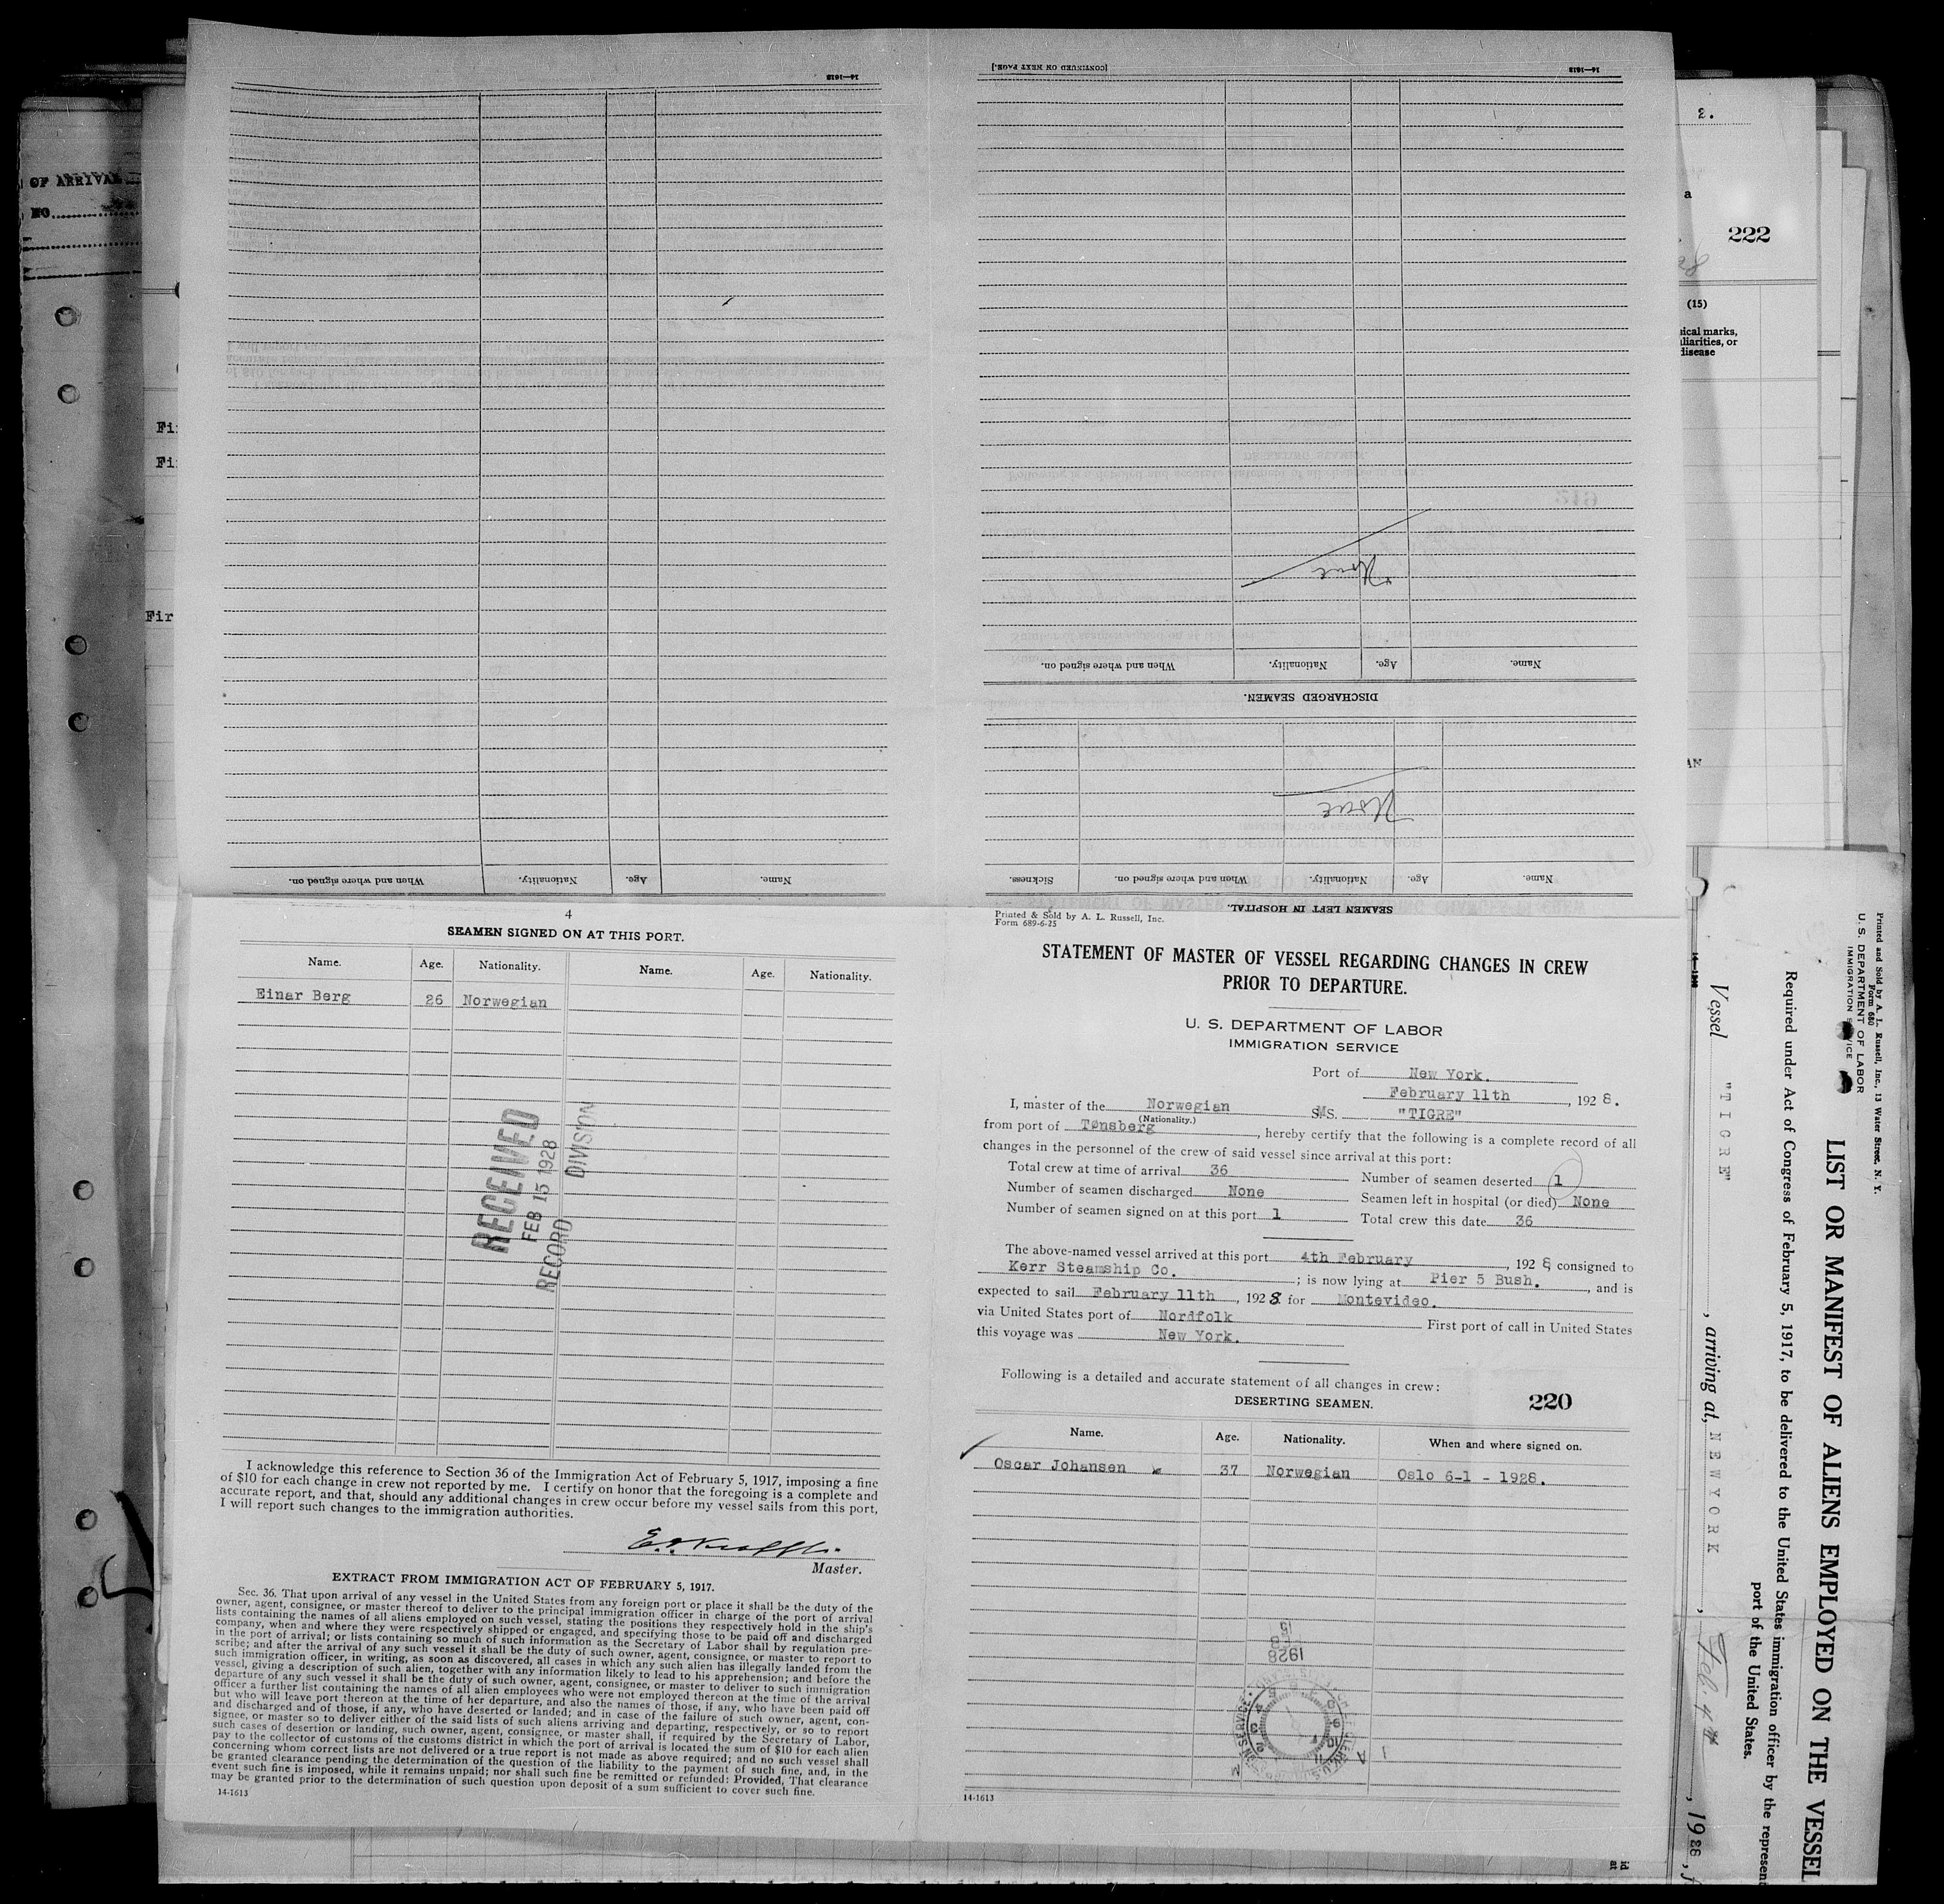 OF ARRIVAL
NO.
Fi
Fi
Fir
14—1613
[CONTINUED ON NEXT PAGE.]
14—1613
None
When and where signed on.
Nationality.
Age.
Name.
DISCHARGED SEAMEN.
None
When and where signed on.
Nationality.
Age.
Name.
Sickness.
When and where signed on.
Nationality.
Age.
Name.
SEAMEN LEFT IN HOSPITAL.
4
SEAMEN SIGNED ON AT THIS PORT.
Name. Age. Nationality. Name. Age. Nationality.
Einar Berg 26 Norwegian
RECEIVED
FEB 15 1928
RECORD DIVISION
I acknowledge this reference to Section 36 of the Immigration Act of February 5, 1917, imposing a fine
of $10 for each change in crew not reported by me. I certify on honor that the foregoing is a complete and
accurate report, and that, should any additional changes in crew occur before my vessel sails from this port,
I will report such changes to the immigration authorities.
Master.
EXTRACT FROM IMMIGRATION ACT OF FEBRUARY 5, 1917.
Sec. 36. That upon arrival of any vessel in the United States from any foreign port or place it shall be the duty of the
owner, agent, consignee, or master thereof to deliver to the principal immigration officer in charge of the port of arrival
lists containing the names of all aliens employed on such vessel, stating the positions they respectively hold in the ship's
company, when and where they were respectively shipped or engaged, and specifying those to be paid off and discharged
in the port of arrival; or lists containing so much of such information as the Secretary of Labor shall by regulation pre-
scribe; and after the arrival of any such vessel it shall be the duty of such owner, agent, consignee, or master to report to
such immigration officer, in writing, as soon as discovered, all cases in which any such alien has illegally landed from the
vessel, giving a description of such alien, together with any information likely to lead to his apprehension; and before the
departure of any such vessel it shall be the duty of such owner, agent, consignee, or master to deliver to such immigration
officer a further list containing the names of all alien employees who were not employed thereon at the time of the arrival
but who will leave port thereon at the time of her departure, and also the names of those, if any, who have been paid off
and discharged and of those, if any, who have deserted or landed; and in case of the failure of such owner, agent, con-
signee, or master so to deliver either of the said lists of such aliens arriving and departing, respectively, or so to report
such cases of desertion or landing, such owner, agent, consignee, or master shall, if required by the Secretary of Labor,
pay to the collector of customs of the customs district in which the port of arrival is located the sum of $10 for each alien
concerning whom correct lists are not delivered or a true report is not made as above required; and no such vessel shall
be granted clearance pending the determination of the question of the liability to the payment of such fine, and, in the
event such fine is imposed, while it remains unpaid; nor shall such fine be remitted or refunded: Provided, That clearance
may be granted prior to the determination of such question upon deposit of a sum sufficient to cover such fine.
14-1613
Printed & Sold by A. L. Russell, Inc.
Form 689-6-25
STATEMENT OF MASTER OF VESSEL REGARDING CHANGES IN CREW
PRIOR TO DEPARTURE.
U. S. DEPARTMENT OF LABOR
IMMIGRATION SERVICE
Port of New York.
February 11th, 1928.
I, master of the Norwegian S.M.S. "TIGRE"
(Nationality.)
from port of Tønsberg, hereby certify that the following is a complete record of all
changes in the personnel of the crew of said vessel since arrival at this port:
Total crew at time of arrival 36 Number of seamen deserted 1
Number of seamen discharged None Seamen left in hospital (or died) None
Number of seamen signed on at this port 1 Total crew this date 36
The above-named vessel arrived at this port 4th February, 1928 consigned to
Kerr Steamship Co.; is now lying at Pier 5 Bush., and is
expected to sail February 11th, 1928 for Montevideo.
via United States port of Nordfolk First port of call in United States
this voyage was New York.
Following is a detailed and accurate statement of all changes in crew:
DESERTING SEAMEN.
220
Name. Age. Nationality. When and where signed on.
Oscar Johansen 37 Norwegian Oslo 6-1 - 1928.
1928
14-1613
2.
a
222
(15)
ical marks,
liarities, or
disease
Printed and Sold by A. L. Russell, Inc., 13 Water Street, N. Y.
Form 680
U. S. DEPARTMENT OF LABOR
IMMIGRATION SERVICE
LIST OR MANIFEST OF ALIENS EMPLOYED ON THE VESSEL
Required under Act of Congress of February 5, 1917, to be delivered to the United States immigration officer by the represent
port of the United States.
Vessel "TIGRE", arriving at NEWYORK, Feb. 4th, 1928, f